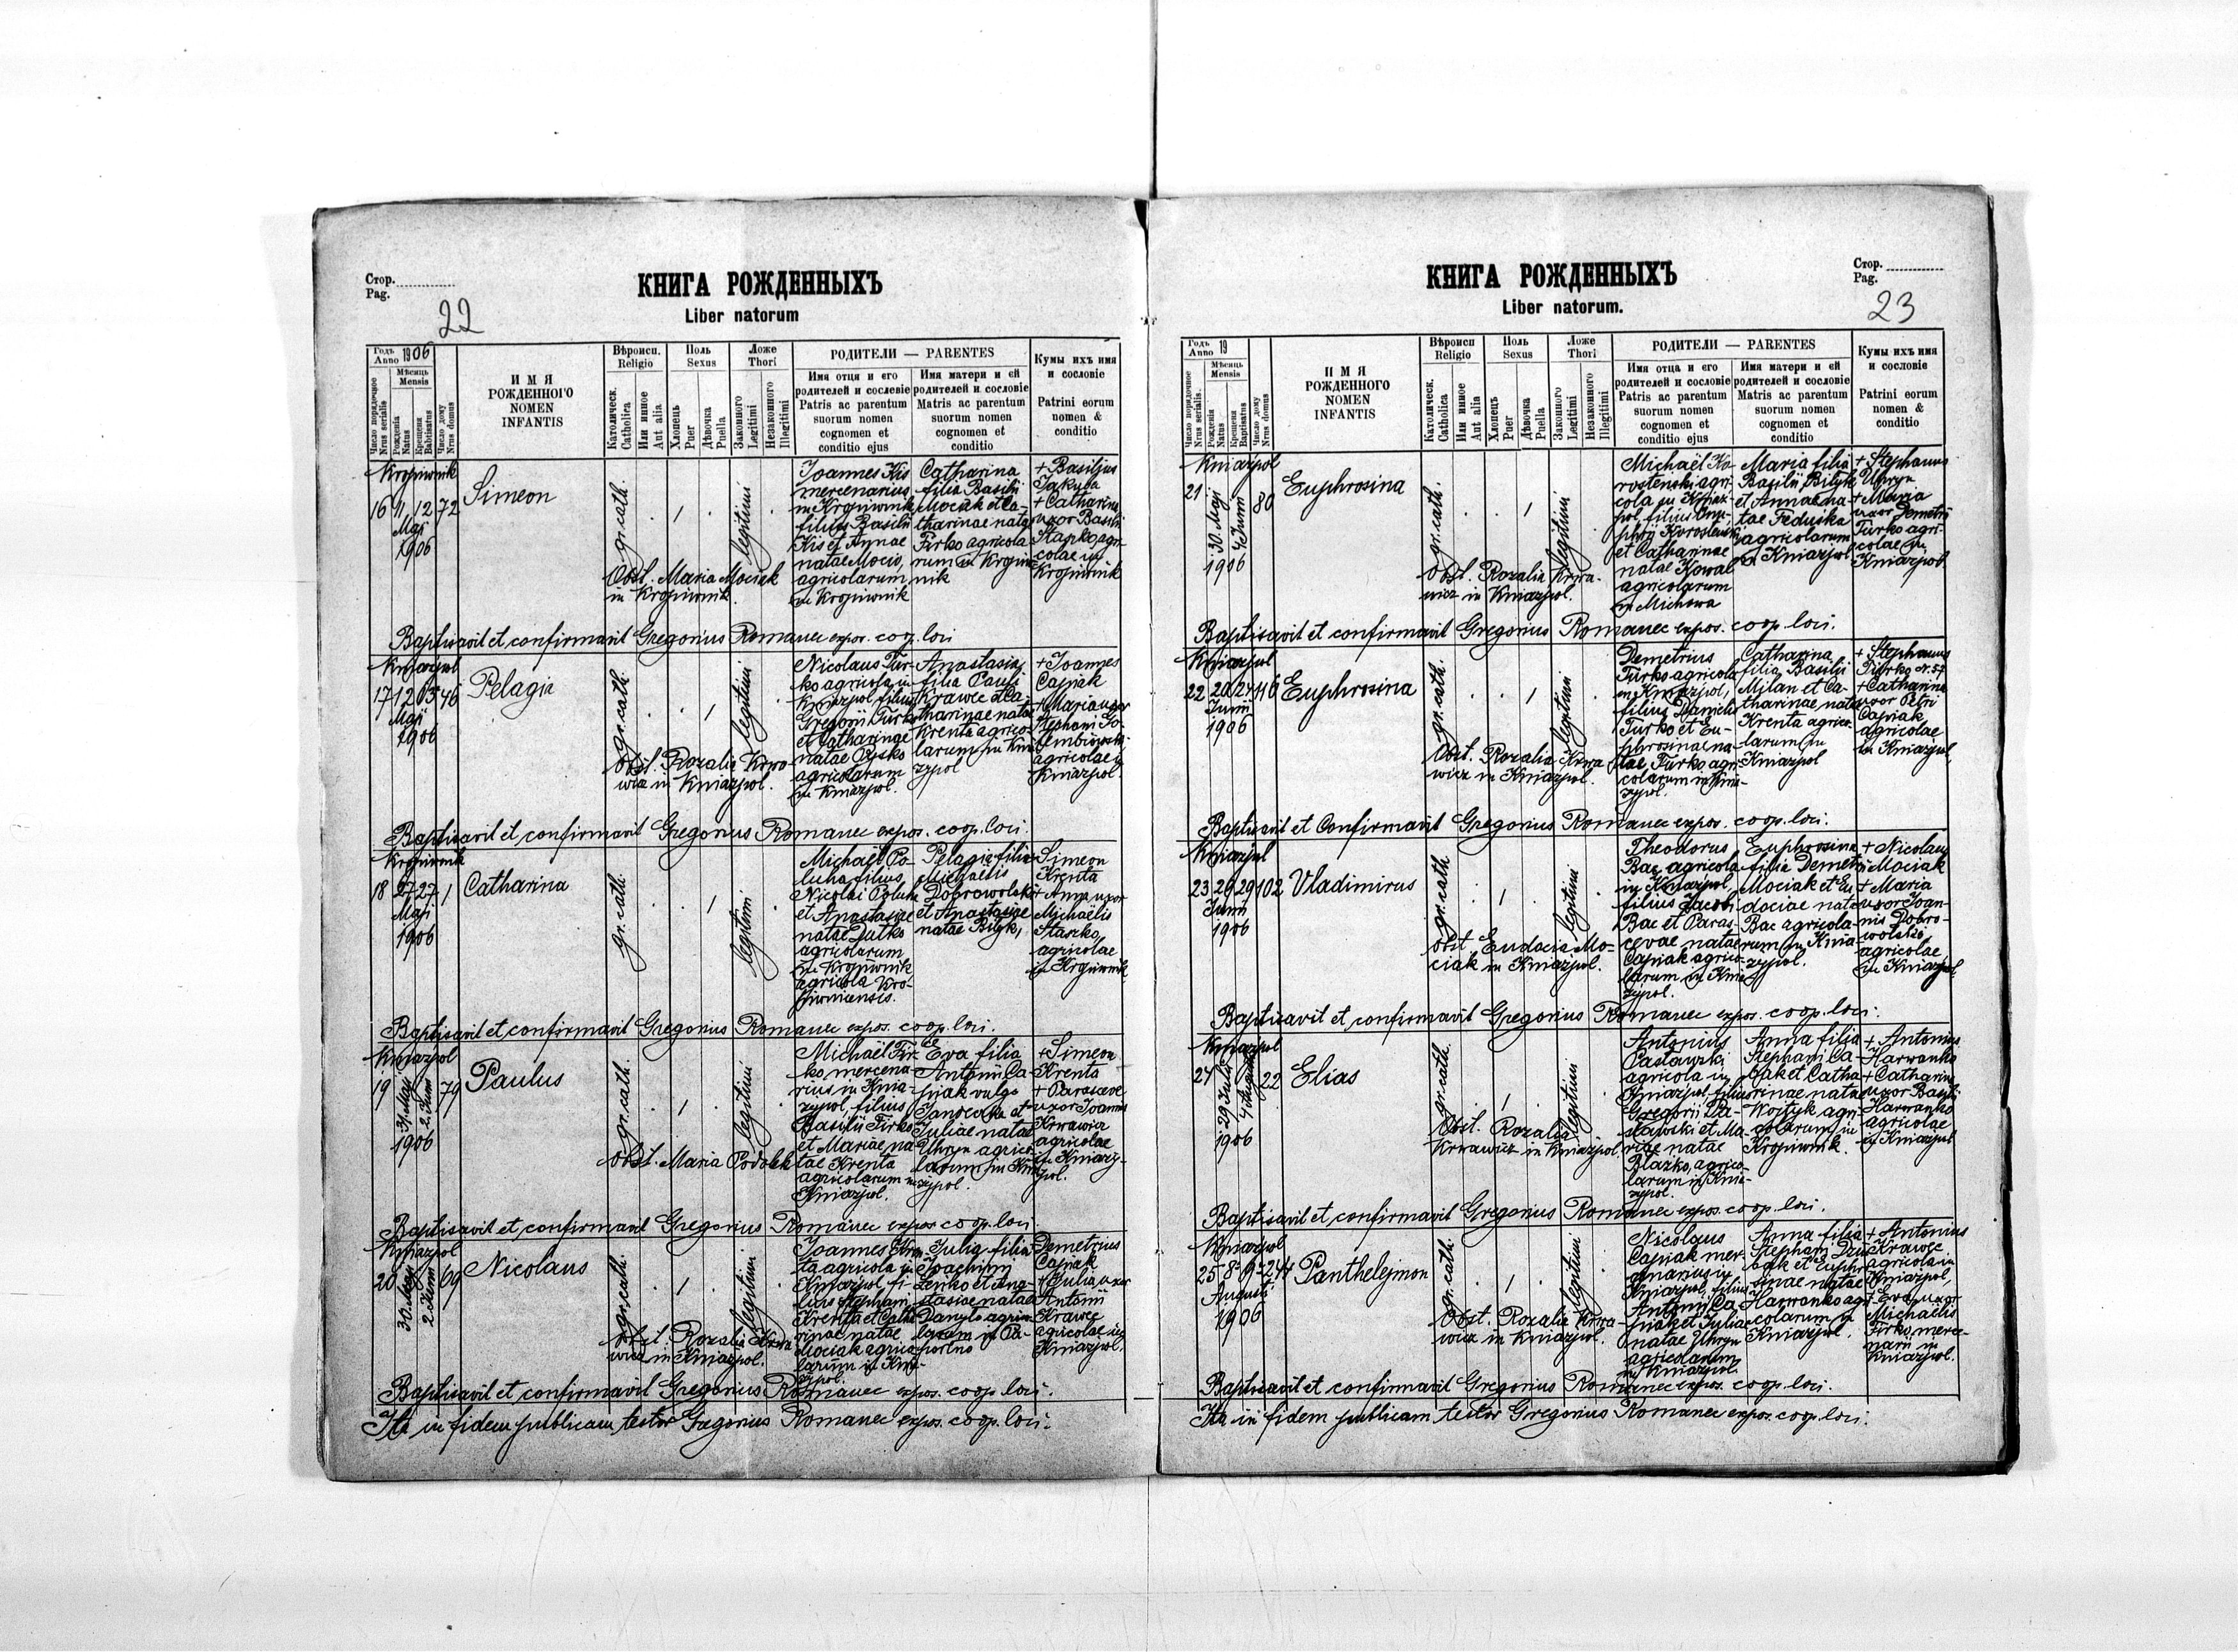 Стор.
Pag.
22
КНИГА РОЖДЕННЫХЪ
Liber natorum
Годъ Anno 1906
Мѣсяць
Mensis
Число порядочное
Nrus serialis
Рожденія
Natus
Крещенія
Babtisatus
Число дому
Nrus domus
И М Я
РОЖДЕННОГО
NOMEN
INFANTIS
Вѣроисп.
Religio
Католическ.
Catholica
Или инное
Aut alia
Полъ
Sexus
Хлопець
Puer
Дѣвочка
Puella
Ложе
Thori
Законного
Legitimi
Незаконного
Illegitimi
РОДИТЕЛИ — PARENTES
Имя отця и его
родителей и сословіе
Patris ac parentum
suorum nomen
cognomen et
conditio ejus
Имя матери и ей
родителей и сословіе
Matris ac parentum
suorum nomen
cognomen et
conditio
Кумы ихъ имя
и сословіе
Patrini eorum
nomen &
conditio
Kropiwnik
16 11 12 72
Maji
1906
Simeon
gr. cath.
legitimi
Joannes Kis
mercenarius
in Kropiwnik
filius Basilii
Kis et Annae
natae Mocio,
agricolarum
in Kropiwnik
Catharina
filia Basilii
Mociak et Ca-
tharinae natae
Firko agricola
rum in Kropiw-
nik
+ Basilius
Jakuba
+ Catharina
uxor Basilii
Stapko agri-
colae in
Kropiwnik
Obst. Maria Mociak
in Kropiwnik.
Baptisavit et confirmavit Gregorius Romanec expos. coop. loci
Kniazpol
17 12 13 46
Maji
1906
Pelagia
gr. cath.
legitimi
Nicolaus Tur-
ko agricola in
Kniazpol filius
Gregorii Turko
et Catharinae
natae
agricolarum
in Kniazpol.
Anastasia
filia Pauli
Krawec et Ca-
tharinae natae
Krenta agrico-
larum in Knia-
zpol
+ Joannes
Capiak
+ Maria uxor
Stephani
agricolae in
Kniazpol.
Obst. Rozalia Krwa
wicz in Kniazpol.
Baptisavit et confirmavit Gregorius Romanec expos. coop. loci.
Kropiwnik
18 27 27 1
Maji
1906
Catharina
gr. cath.
legitimi
Michaël Po-
luha filius
Nicolai Poluha
et Anastasiae
natae Dutko
agricolarum
in Kropiwnik
agricola Kro-
piwniensis.
Pelagia filia
Michaëlis
Dobrowolski
et Anastasiae
natae Bilyk,
Simeon
Krenta
+ Anna uxor
Michaëlis
Staszko,
agricolae
in Kropiwnik
Baptisavit et confirmavit Gregorius Romanec expos. coop. loci.
Kniazpol
19 31 Maji 2 Junii 79
1906
Paulus
gr. cath.
legitimi
Michaël Fir-
ko mercena-
rius in Knia-
zpol, filius
Basilii Firko
et Mariae na-
tae Krenta
agricolarum in
Kniazpol.
Eva filia
Antonii Ca-
piak vulgo
et
Juliae natae
Uhryn agrico-
larum in Knia-
zpol.
+ Simeon
Krenta
+ Parasceve
uxor Joannis
Krwawicz
agricolae
in Kniaz-
pol.
Obst. Maria Podolek
Baptisavit et confirmavit Gregorius Romanec expos. coop. loci.
Kniazpol
20 30 Maji 2 Junii 69
1906
Nicolaus
gr. cath.
legitimi
Joannes Kren-
ta agricola in
Kniazpol fi-
lius Stephani
Krenta et Catha
rinae natae
Mociak agrico
larum in Knia-
zpol.
Julia filia
Joachimi
Lenko et Ana-
stasiae natae
Danylo agrico
larum in Pa-
portno
Demetrius
Capiak
+ Julia uxor
Antonii
Krawec
agricolae in
Kniazpol.
Obst. Rozalia Krwa
wicz in Kniazpol.
Baptisavit et confirmavit Gregorius Romanec expos. coop. loci.
Ita in fidem publicam testor Gregorius Romanec expos. coop. loci.
Стор.
Pag.
23
КНИГА РОЖДЕННЫХЪ
Liber natorum.
Годъ Anno 19
Мѣсяць
Mensis
Число порядочное
Nrus serialis.
Рожденія
Natus
Крещенія
Baptisatus
Число дому
Nrus domus
И М Я
РОЖДЕННОГО
NOMEN
INFANTIS
Вѣроисп
Religio
Католическ.
Catholica
Или инное
Aut alia
Полъ
Sexus
Хлопець
Puer
Дѣвочка
Puella
Ложе
Thori
Законного
Legitimi
Незаконного
Illegitimi
РОДИТЕЛИ — PARENTES
Имя отца и его
родителей и сословіе
Patris ac parentum
suorum nomen
cognomen et
conditio ejus
Имя матери и ей
родителей и сословіе
Matris ac parentum
suorum nomen
cognomen et
conditio
Кумы ихъ имя
и сословіе
Patrini eorum
nomen &
conditio
Kniazpol
21 30 Maji 4 Junii 80
1906
Euphrosina
gr. cath.
legitimi
Michaël Ko-
rostenski agri-
cola in Kniaz-
pol, filius Onu-
phrii Korostenski
et Catharinae
natae Kowal
agricolarum
in Michowa
Maria filia
Basilii Bilyk
et Annae na-
tae Feduska
agricolarum
in Kniazpol
+ Stephanus
Uhryn
+ Maria
uxor Demetrii
Turko agri-
colae in
Kniazpol
Obst. Rozalia Krwa-
wicz in Kniazpol.
Baptisavit et confirmavit Gregorius Romanec expos. coop. loci.
Kniazpol
22 20 24 116
Junii
1906
Euphrosina
gr. cath.
legitimi
Demetrius
Turko agricola
in Kniazpol,
filius Danielis
Turko et Eu-
phrosinae na-
tae Turko agri-
colarum in Knia-
zpol.
Catharina
filia Basilii
Milan et Ca-
tharinae natae
Krenta agrico-
larum in
Kniazpol
+ Stephanus
Turko N. 57
+ Catharina
uxor Petri
Capiak
agricolae
in Kniazpol,
Obst. Rozalia Krwa
wicz in Kniazpol.
Baptisavit et Confirmavit Gregorius Romanec expos. coop. loci.
Kniazpol
23 29 29 102
Junii
1906
Vladimirus
gr. cath
legitimi
Theodorus
Bac agricola
in Kniazpol
filius Jacobi
Bac et Paras-
cevae natae
Capiak agrico-
larum in Knia-
zpol.
Euphrosina
filia Demetrii
Mociak et Eu
dociae natae
Bac agricola-
rum in Knia-
zypol.
+ Nicolaus
Mociak
+ Maria
uxor Joan-
nis Dobro-
wolski
agricolae
in Kniazpol
Obst. Eudocia Mo-
ciak in Kniazpol.
Baptisavit et confirmavit Gregorius Romanec expos. coop. loci.
Kniazpol
24 29 Julii 4 Augusti 22
1906
Elias
gr. cath.
legitimi
Antonius
Pastawski
agricola in
Kniazpol filius
Gregorii Pa-
stawski et Ma-
riae natae
Blazko, agrico-
larum in Knia-
zpol.
Anna filia
Stephani Ca-
piak et Catha-
rinae natae
Wojtyk agri-
colarum in
Kropiwnik.
+ Antonius
Harwanko
+ Catharina
uxor Basilii
Harwanko
agricolae
in Kniazpol
Obst. Rozalia
Krwawicz in Kniazpol.
Baptisavit et confirmavit Gregorius Romanec expos. coop. loci.
Kniazpol
25 8 9 244
Augusti
1906
Panthelejmon
gr. cath.
legitimi
Nicolaus
Capiak mer-
cenarius in
Kniazpol, filius
Antonii Ca-
piak et Juliae
natae Uhryn
agricolarum
in Kniazpol
Anna filia
Stephani
et Euphro-
sinae natae
Harwanko agri-
colarum in
Kniazpol.
+ Antonius
Krawec
agricola in
Kniazpol,
+ Eva uxor
Michaëlis
Firko merce-
narii in
Kniazpol.
Obst. Rozalia Krwa-
wicz in Kniazpol.
Baptisavit et confirmavit Gregorius Romanec expos. coop. loci.
Ita in fidem publicam testor Gregorius Romanec expos. coop. loci.